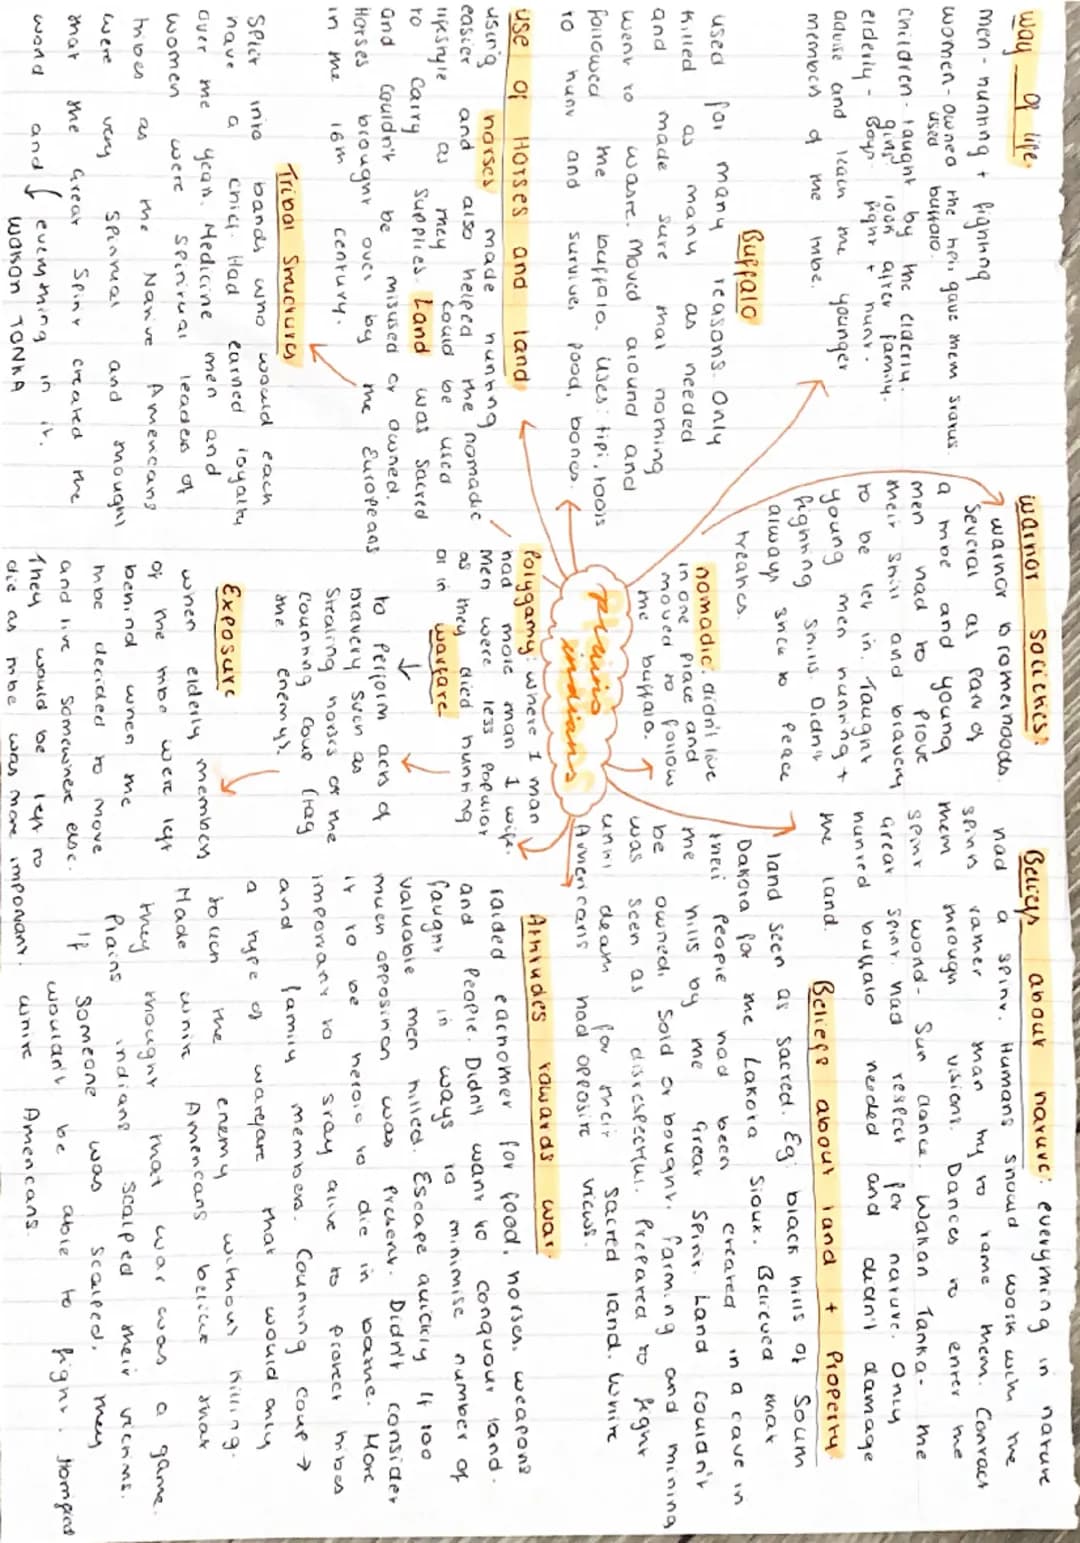 way of life.
men - hunting + fighting
women - owned the tipi gave them status.
used buffalo.
Children - taught by the elderly.
girls look after family.
elderly - Boys fight + hunt.
advise and learn the younger
members of the tribe.
Buffalo
used for many reasons. Only
killed as many as needed
and made sure that nothing
went to waste. Moved around and
followed the buffalo. Uses: tipi, tools
to hunt and survive, food, bones.
use of Horses and land
using horses made hunting
easier and also helped the nomadic
lifestyle as they could be used
to carry supplies. Land was sacred
and couldn't be misused or owned.
Horses brought over by the Europeans
in the 16th century.
Tribal Structures
Split into bands who would each
have a chief. Had earned loyalty
over the years. Medicine men and
women were spiritual leaders of
tribes as the Native Americans
were very spiritual and thought
that the Great Spirit created the
world and everything in it.
WAKAN TONKA
warrior societies:
warrior brotherhoods.
Several as part of
a tribe and young
men had to prove
their skill and bravery
to be let in. Taught
young men hunting +
fighting skills. Didn't
always stick to peace
treaties.
nomadic. didn't live
in one place and
moved to follow
the buffalo.
Plains
indians
Polygamy: where 1 man
had more than 1 wife.
men were less popular
as they died hunting
or in warfare
to perform acts of
bravery such as
Stealing horses or the
counting coup (tag
the enemy).
Exposure
when elderly members
of the tribe were left
behind when the
tribe decided to move
and live somewhere else.
They would be left to
die as tribe was more important.
Beliefs about nature: everything in nature
had a spirit. Humans should work with the
spirits rather than try to tame them. Contact
them through visions. Dances to enter the
spirit world - Sun dance. Wakan Tanka - the
Great spirit. had respect for nature. Only
hunted buffalo needed and didn't damage
the land.
Beliefs about land + Property
land seen as sacred. Eg: black hills of South
Dakota for the Lakota Sioux. Believed that
their people had been created in a cave in
the hills by the Great Spirit. Land couldn't
be owned, sold or bought. farming and mining
was seen as disrespectful. Prepared to fight
until death for their sacred land. White
Americans had opposite views.
Attitudes towards war.
raided eachother for food, horses, weapons
and people. Didn't want to conquour land.
fought in ways to minimise number of
valuable men killed. Escape quickly if too
much opposition was present. Didn't consider
it to be heroic to die in battle. More
important to stay alive to protect tribes
and family members. Counting coup →
a type of warfare that would only
touch the enemy without killing.
Made white Americans believe that
they thought that war was a game.
Plains indians scalped their victims.
If someone was scalped, they
wouldn't be able to fight. Horrified
white Americans.